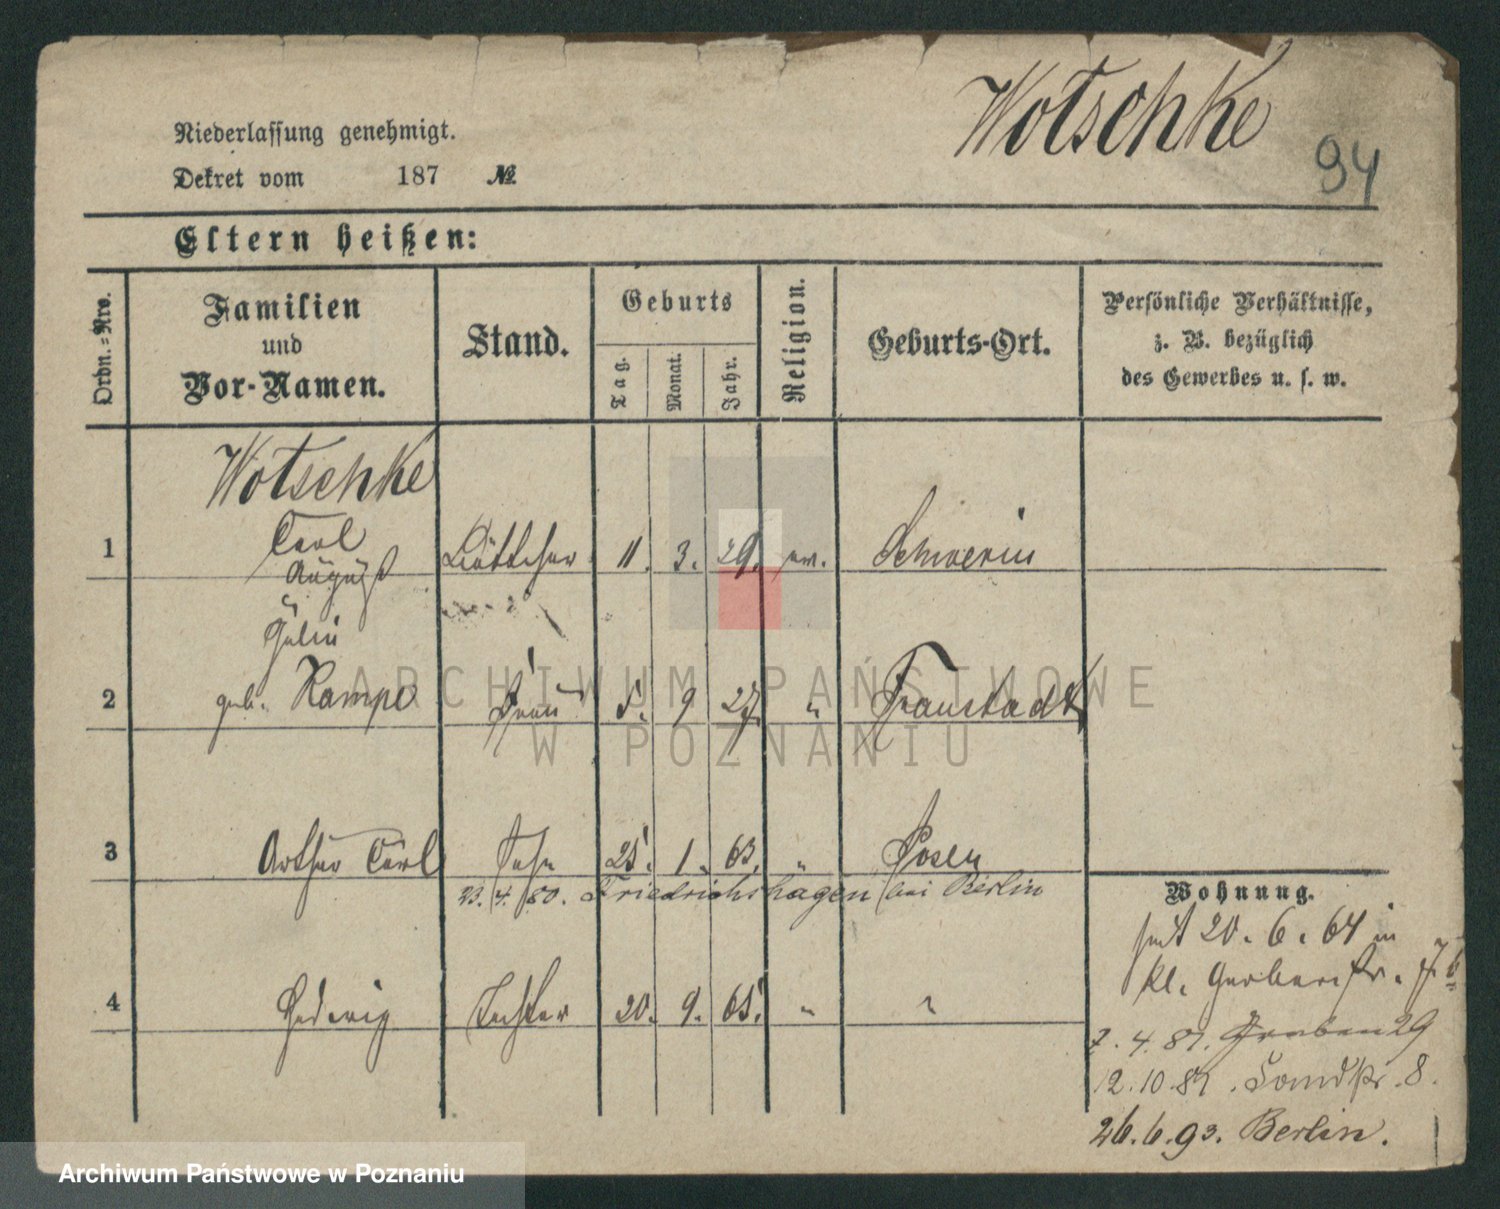 Wotschke
94
Niederlassung genehmigt.
Dekret vom 187 №
Eltern heißen:
Ordn.=Nro.
Familien
und
Vor-Namen.
Stand.
Geburts
Tag.
Monat.
Jahr.
Religion.
Geburts-Ort.
Persönliche Verhältnisse,
z. B. bezüglich
des Gewerbes u. s. w.
Wotschke
Carl
1 August Böttcher 11. 3. 29. ev. Schwerin
2 geb. Rampe Frau 5. 9 27. " Fraustadt
3 Arthur Carl Sohn 25. 1. 63. " Posen
23. 4. 80. Friedrichshagen bei Berlin
4 Hedwig Tochter 20. 9. 65. " "
Wohnung.
seit 20. 6. 64 in
kl. Gerberstr.
7. 4. 81. Graben 29
12. 10. 81. Sandstr. 8.
26. 6. 93. Berlin.
ARCHIWUM PAŃSTWOWE
W POZNANIU
Archiwum Państwowe w Poznaniu